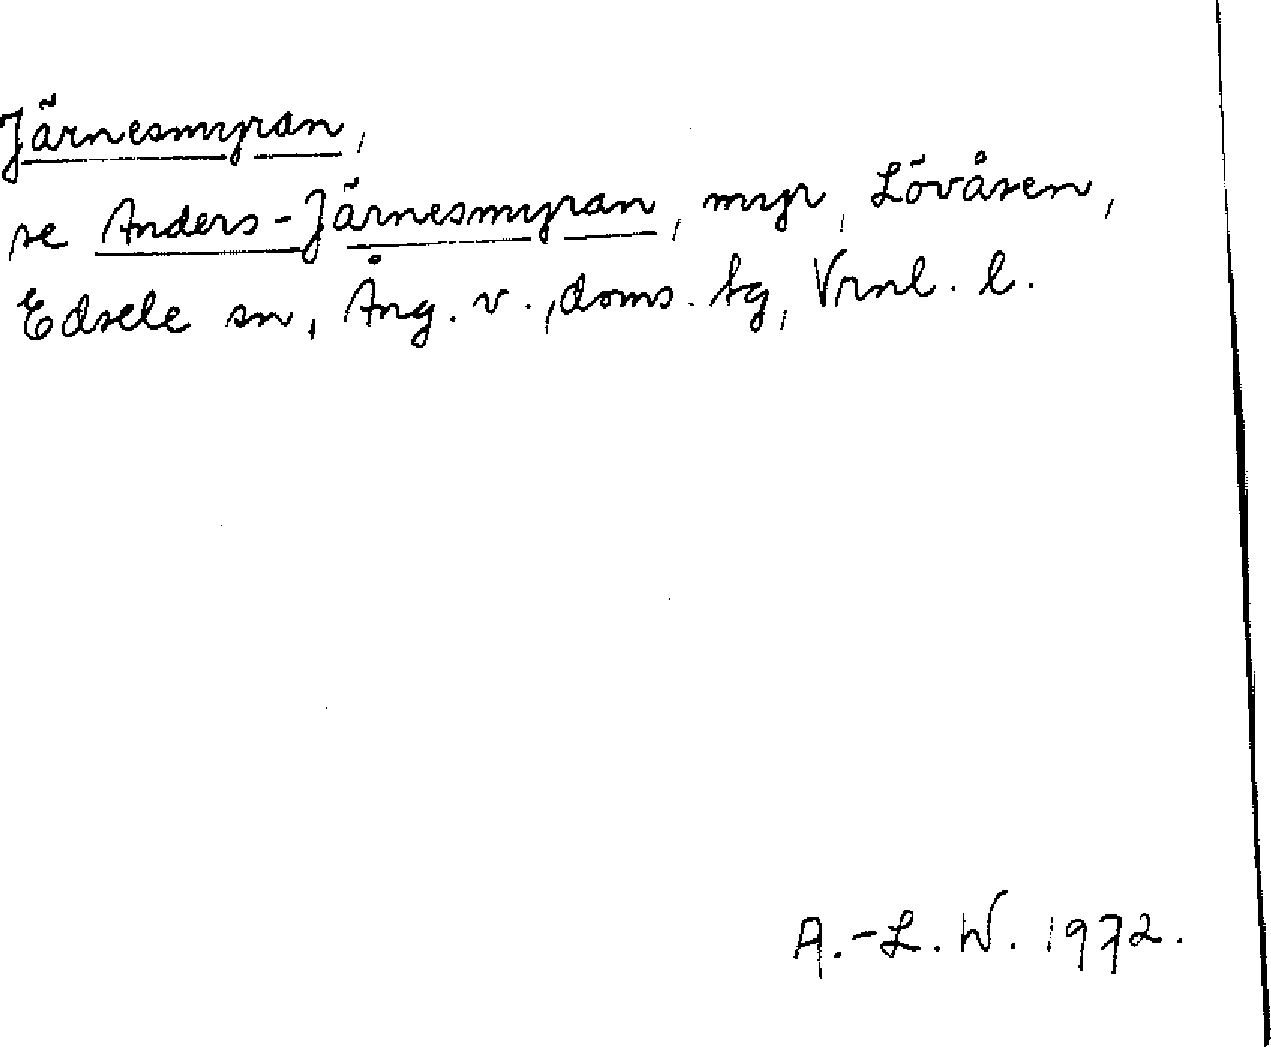 Järnesmyran,
se Anders-Järnesmyran, myr, Lövåsen,
Edsele sn, Ång. v., doms. tg, Vrnl. l.
A.-L. W. 1972.